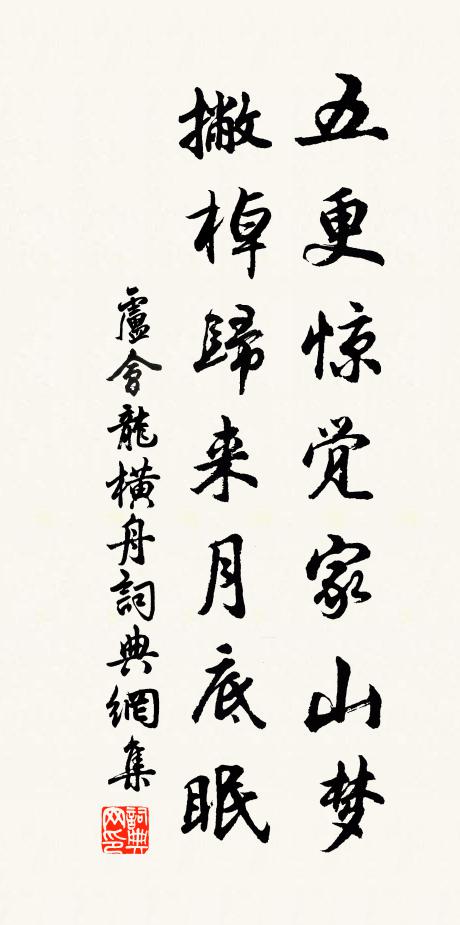 五更惊觉家山梦
撇棹歸来月底眠
盧會龍橫舟詞典網集
詞典网印